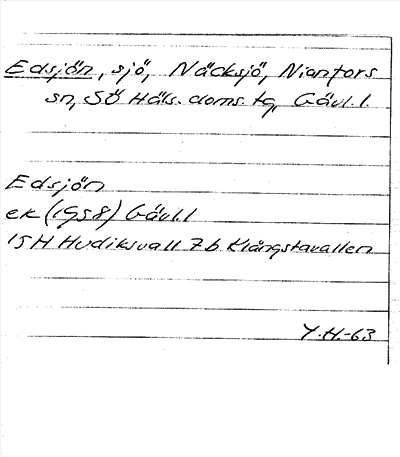 Edsjön, sjö, Näcksjö, Njanfors
sn, SÖ Häls. doms. tg, Gävl. l.
Edsjön
ek (1958) Gävl. l
15H Hudiksvall 7b Klångstavallen
Y. H.-63